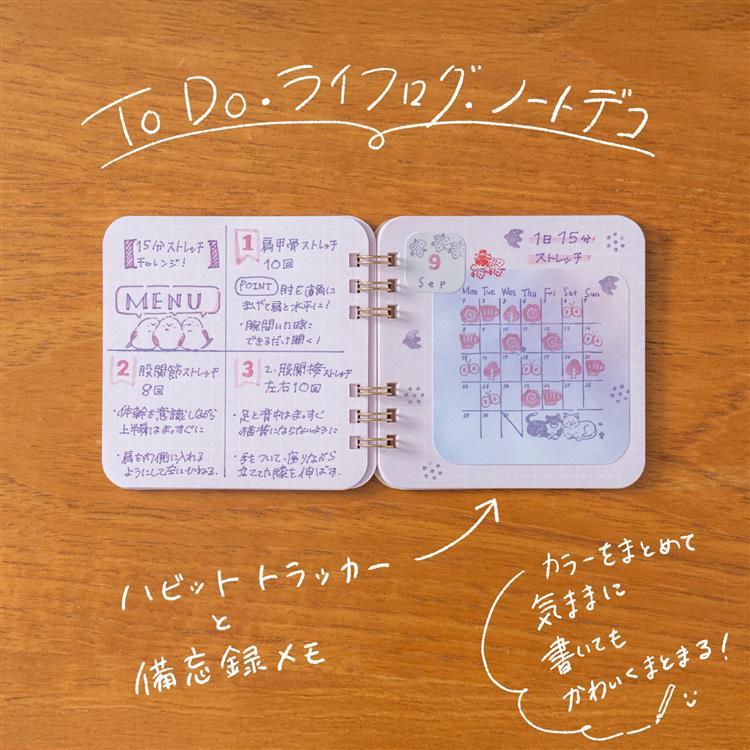 To Do・ライフログ・ノートデコ
15分ストレッチ
チャレンジ!
MENU
1 肩甲骨ストレッチ
10回
POINT 肘を直角に
まげて肩と水平に!
・腕開いた時に
できるだけ開く!
2 股関節ストレッチ
8回
・体幹を意識しながら
上半身はまっすぐに
・肩を内側に入れる
ようにして左にひねる.
3 2.股関接ストレッチ
左右10回
・足と背中はまっすぐ
猫背にならないように
・手をついて、座りながら
立ててた膝を伸ばす.
9
Sep
1日15分
ストレッチ
Mon Tue Wed Thu Fri Sat Sun
ハビットトラッカー
と
備忘録メモ
カラーをまとめて
気ままに
書いても
かわいくまとまる!